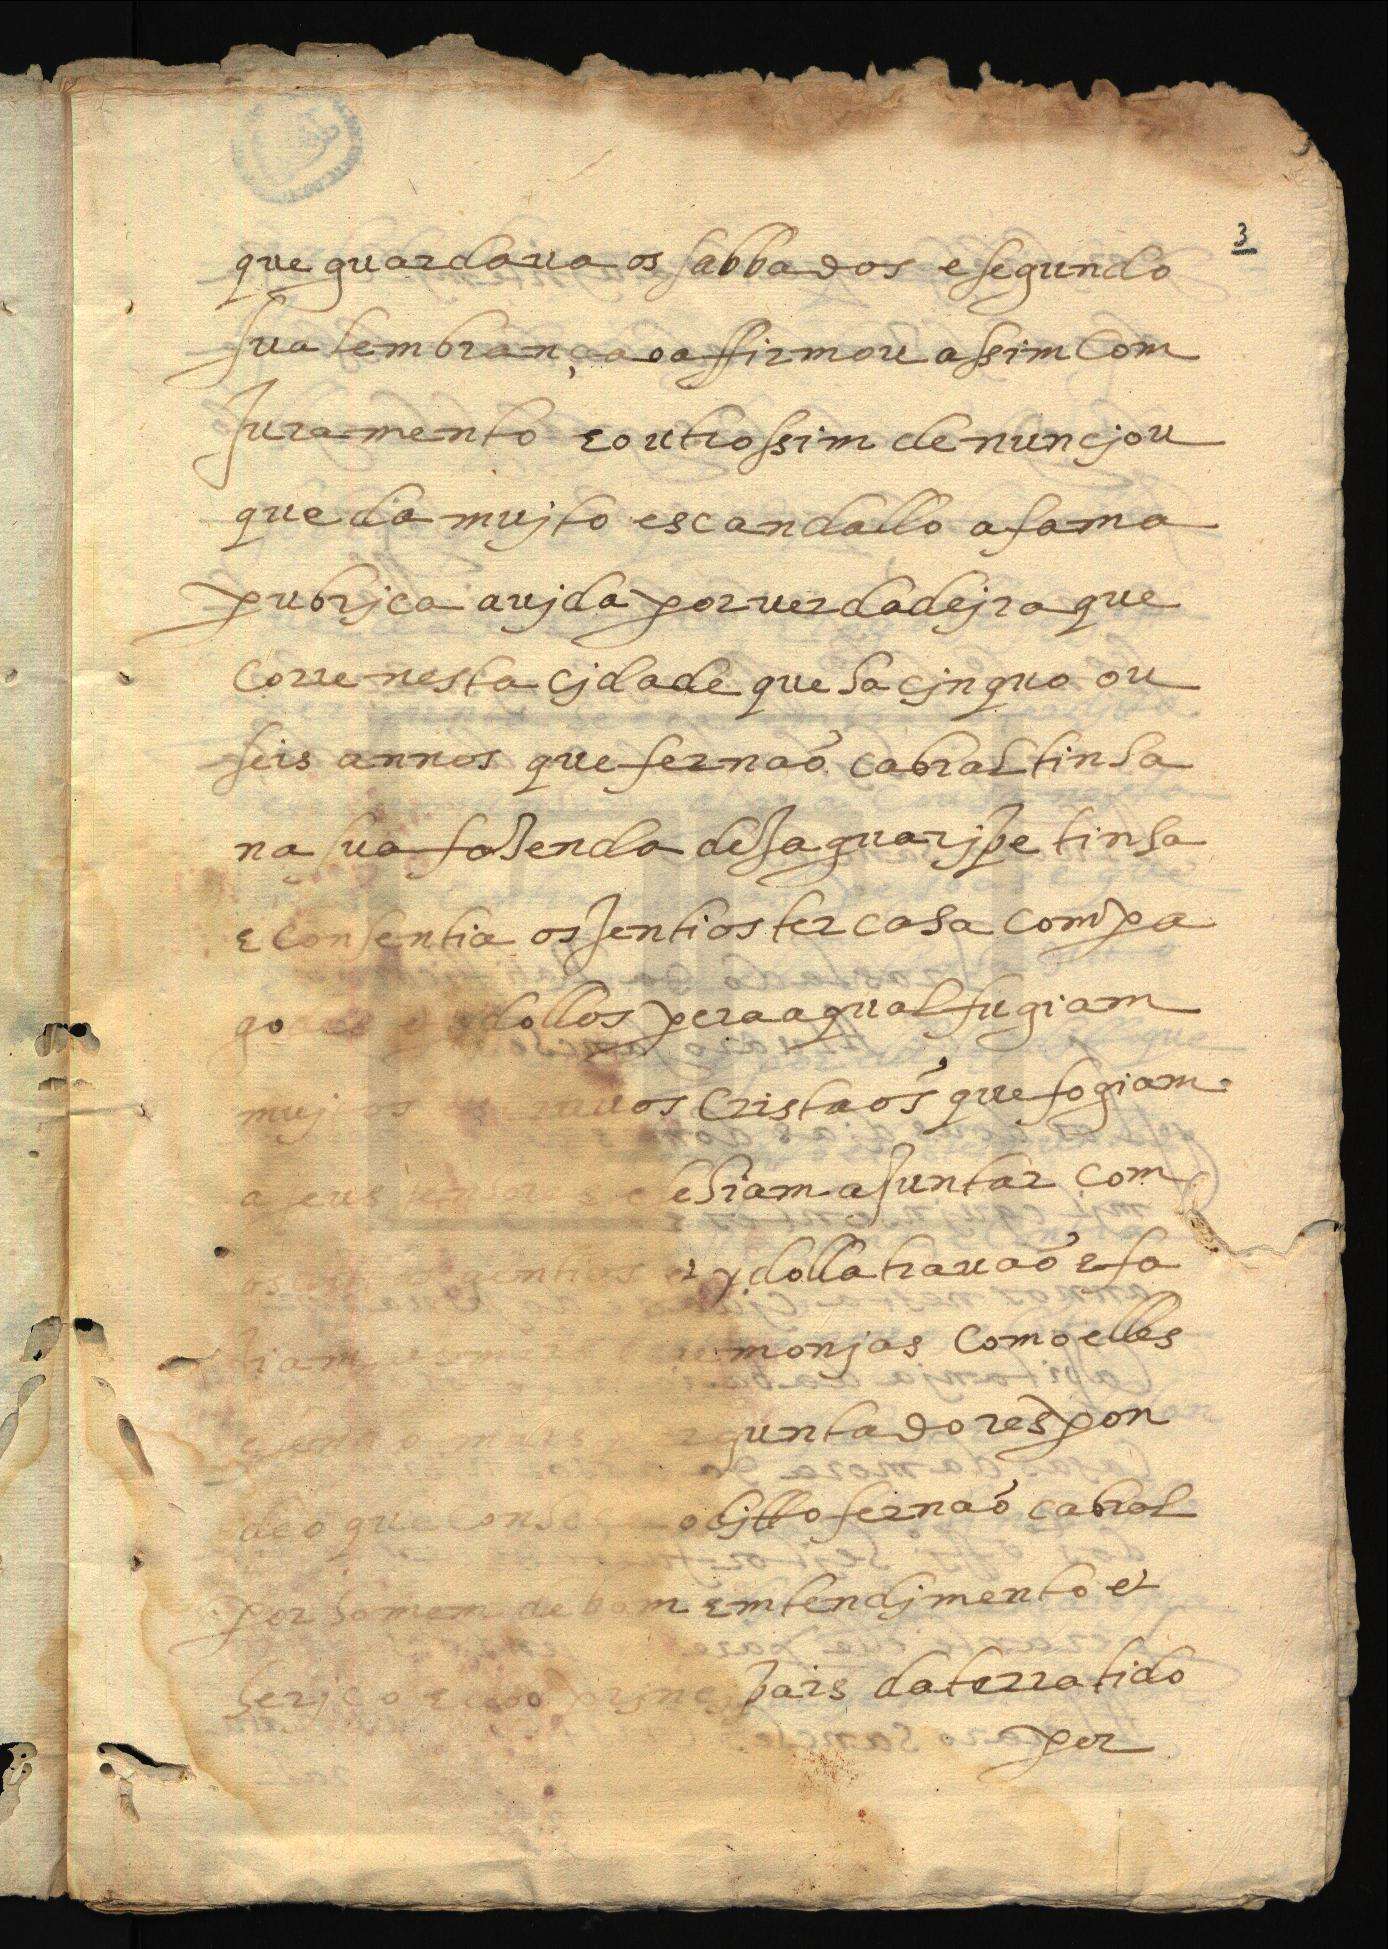 3
que guardaua os sabbados e segundo
sua lembrança o affirmou assim com
Juramento e outrossim denuncjou
que da mujto escandallo a fama
pubrjca aujda por uerdadejra que
corre nesta cjdade que ha cjnquo ou
seis annos que fernaõ cabral tinha
na sua fazenda de Jaguarjpe tinha
e consentia os Jentios ter casa com pa
go dollos pera a qual fugiam
muj os cristaõs que fogiam
a seus e hiam a Juntar com
os gentios e ydollatrauaõ e fa
ziam monjas como elles
guntado respon
deo que conhece o djtto fernaõ cabral
por homem de bom emtendjmento et
rico e dos princjpais da terra tido
per